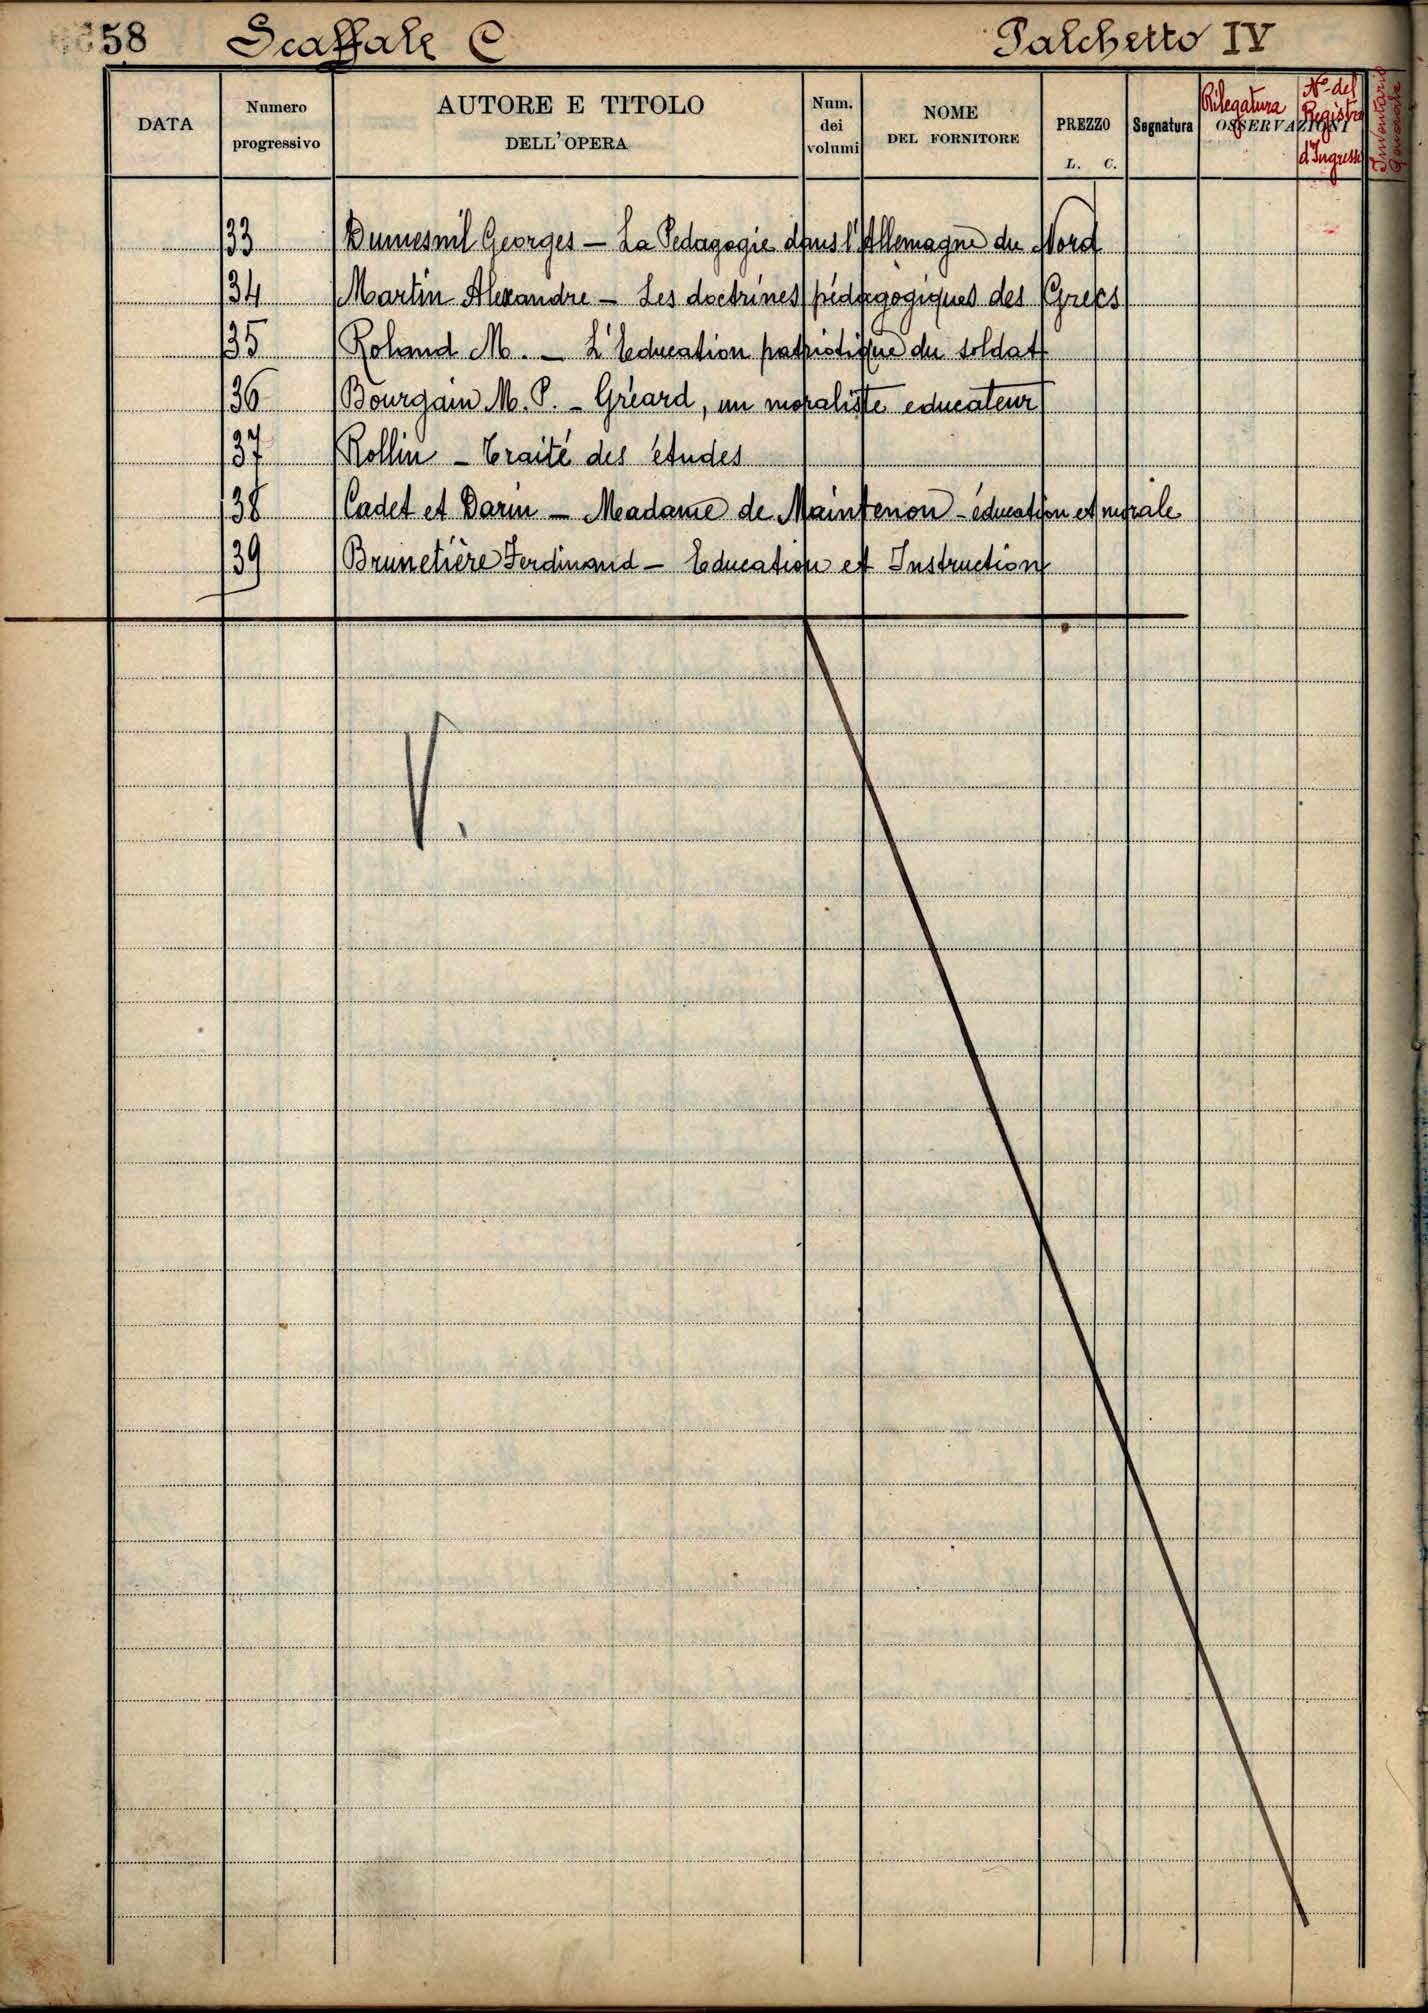 58 Scaffale C Palchetto IV
DATA
Numero
progressivo
AUTORE E TITOLO
DELL'OPERA
Num.
dei
volumi
NOME
DEL FORNITORE
PREZZO
L. C.
Segnatura
Rilegatura
OSSERVAZIONI
N° del
Registro
d'Ingresso
Inventario
Generale
33 Dumesnil Georges — La Pedagogie dans l'Allemagne du Nord
34 Martin Alexandre — Les doctrines pédagogiques des Grecs
35 Roland M. — L'Education patriotique du soldat
36 Bourgain M. P. — Gréard, un moraliste educateur
37 Rollin — Traité des études
38 Cadet et Darin — Madame de Maintenon - éducation et morale
39 Brunetière Ferdinand — Education et Instruction
V.